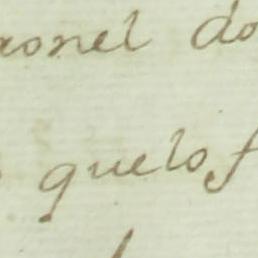 ronel do
quelos